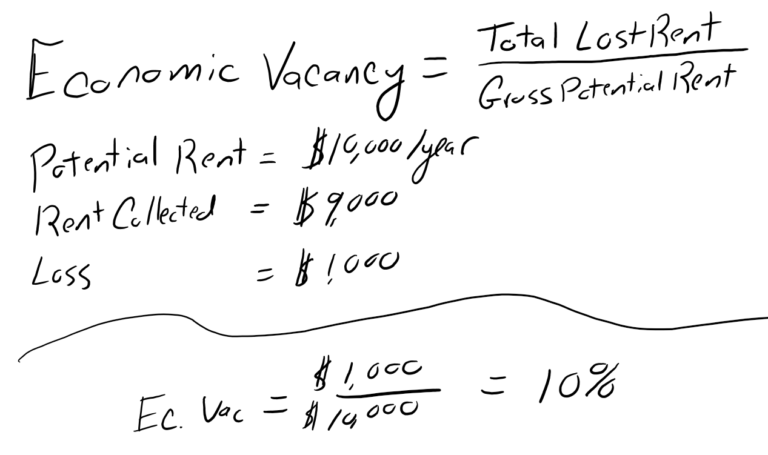 Economic Vacancy = Total Lost Rent / Gross Potential Rent
Potential Rent = $10,000/year
Rent Collected = $9,000
Loss = $1,000
Ec. Vac = $1,000 / $10,000 = 10%